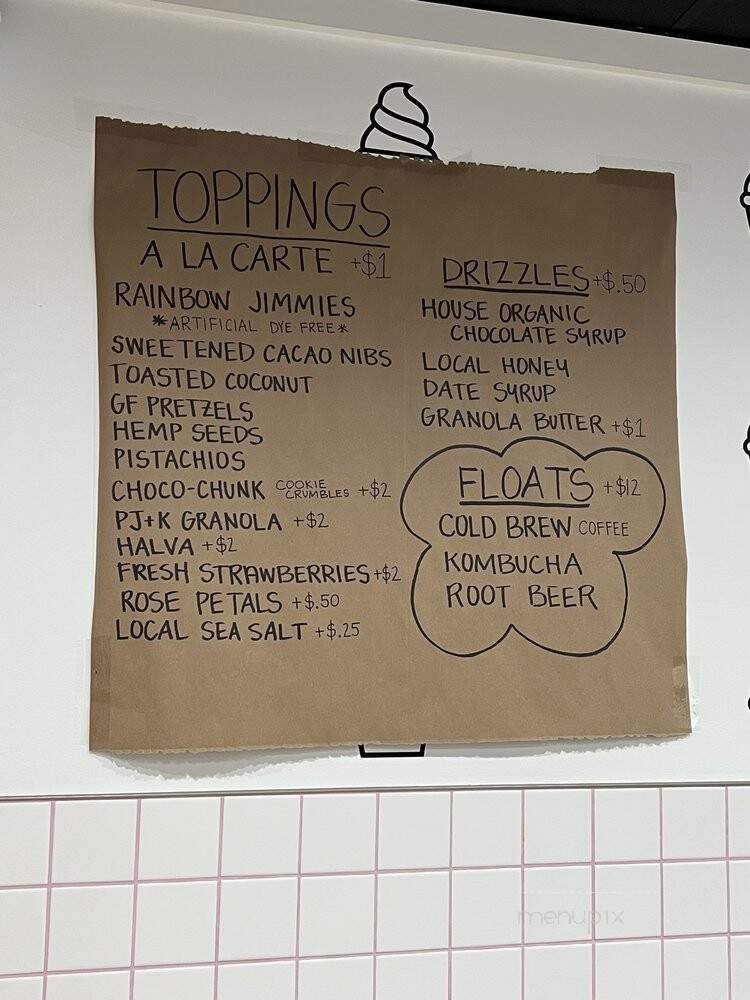 TOPPINGS
A LA CARTE +$1
RAINBOW JIMMIES
*ARTIFICIAL DYE FREE*
SWEETENED CACAO NIBS
TOASTED COCONUT
GF PRETZELS
HEMP SEEDS
PISTACHIOS
CHOCO-CHUNK COOKIE CRUMBLES +$2
PJ+K GRANOLA +$2
HALVA +$2
FRESH STRAWBERRIES +$2
ROSE PETALS +$.50
LOCAL SEA SALT +$.25
DRIZZLES +$.50
HOUSE ORGANIC
CHOCOLATE SYRUP
LOCAL HONEY
DATE SYRUP
GRANOLA BUTTER +$1
FLOATS +$12
COLD BREW COFFEE
KOMBUCHA
ROOT BEER
menupix